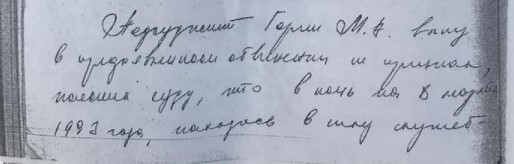 Подсудимый Горин М.А. вину
в предъявленном обвинении не признал,
пояснив суду, что в ночь на 8 марта
1993 года, находясь в силу служеб-